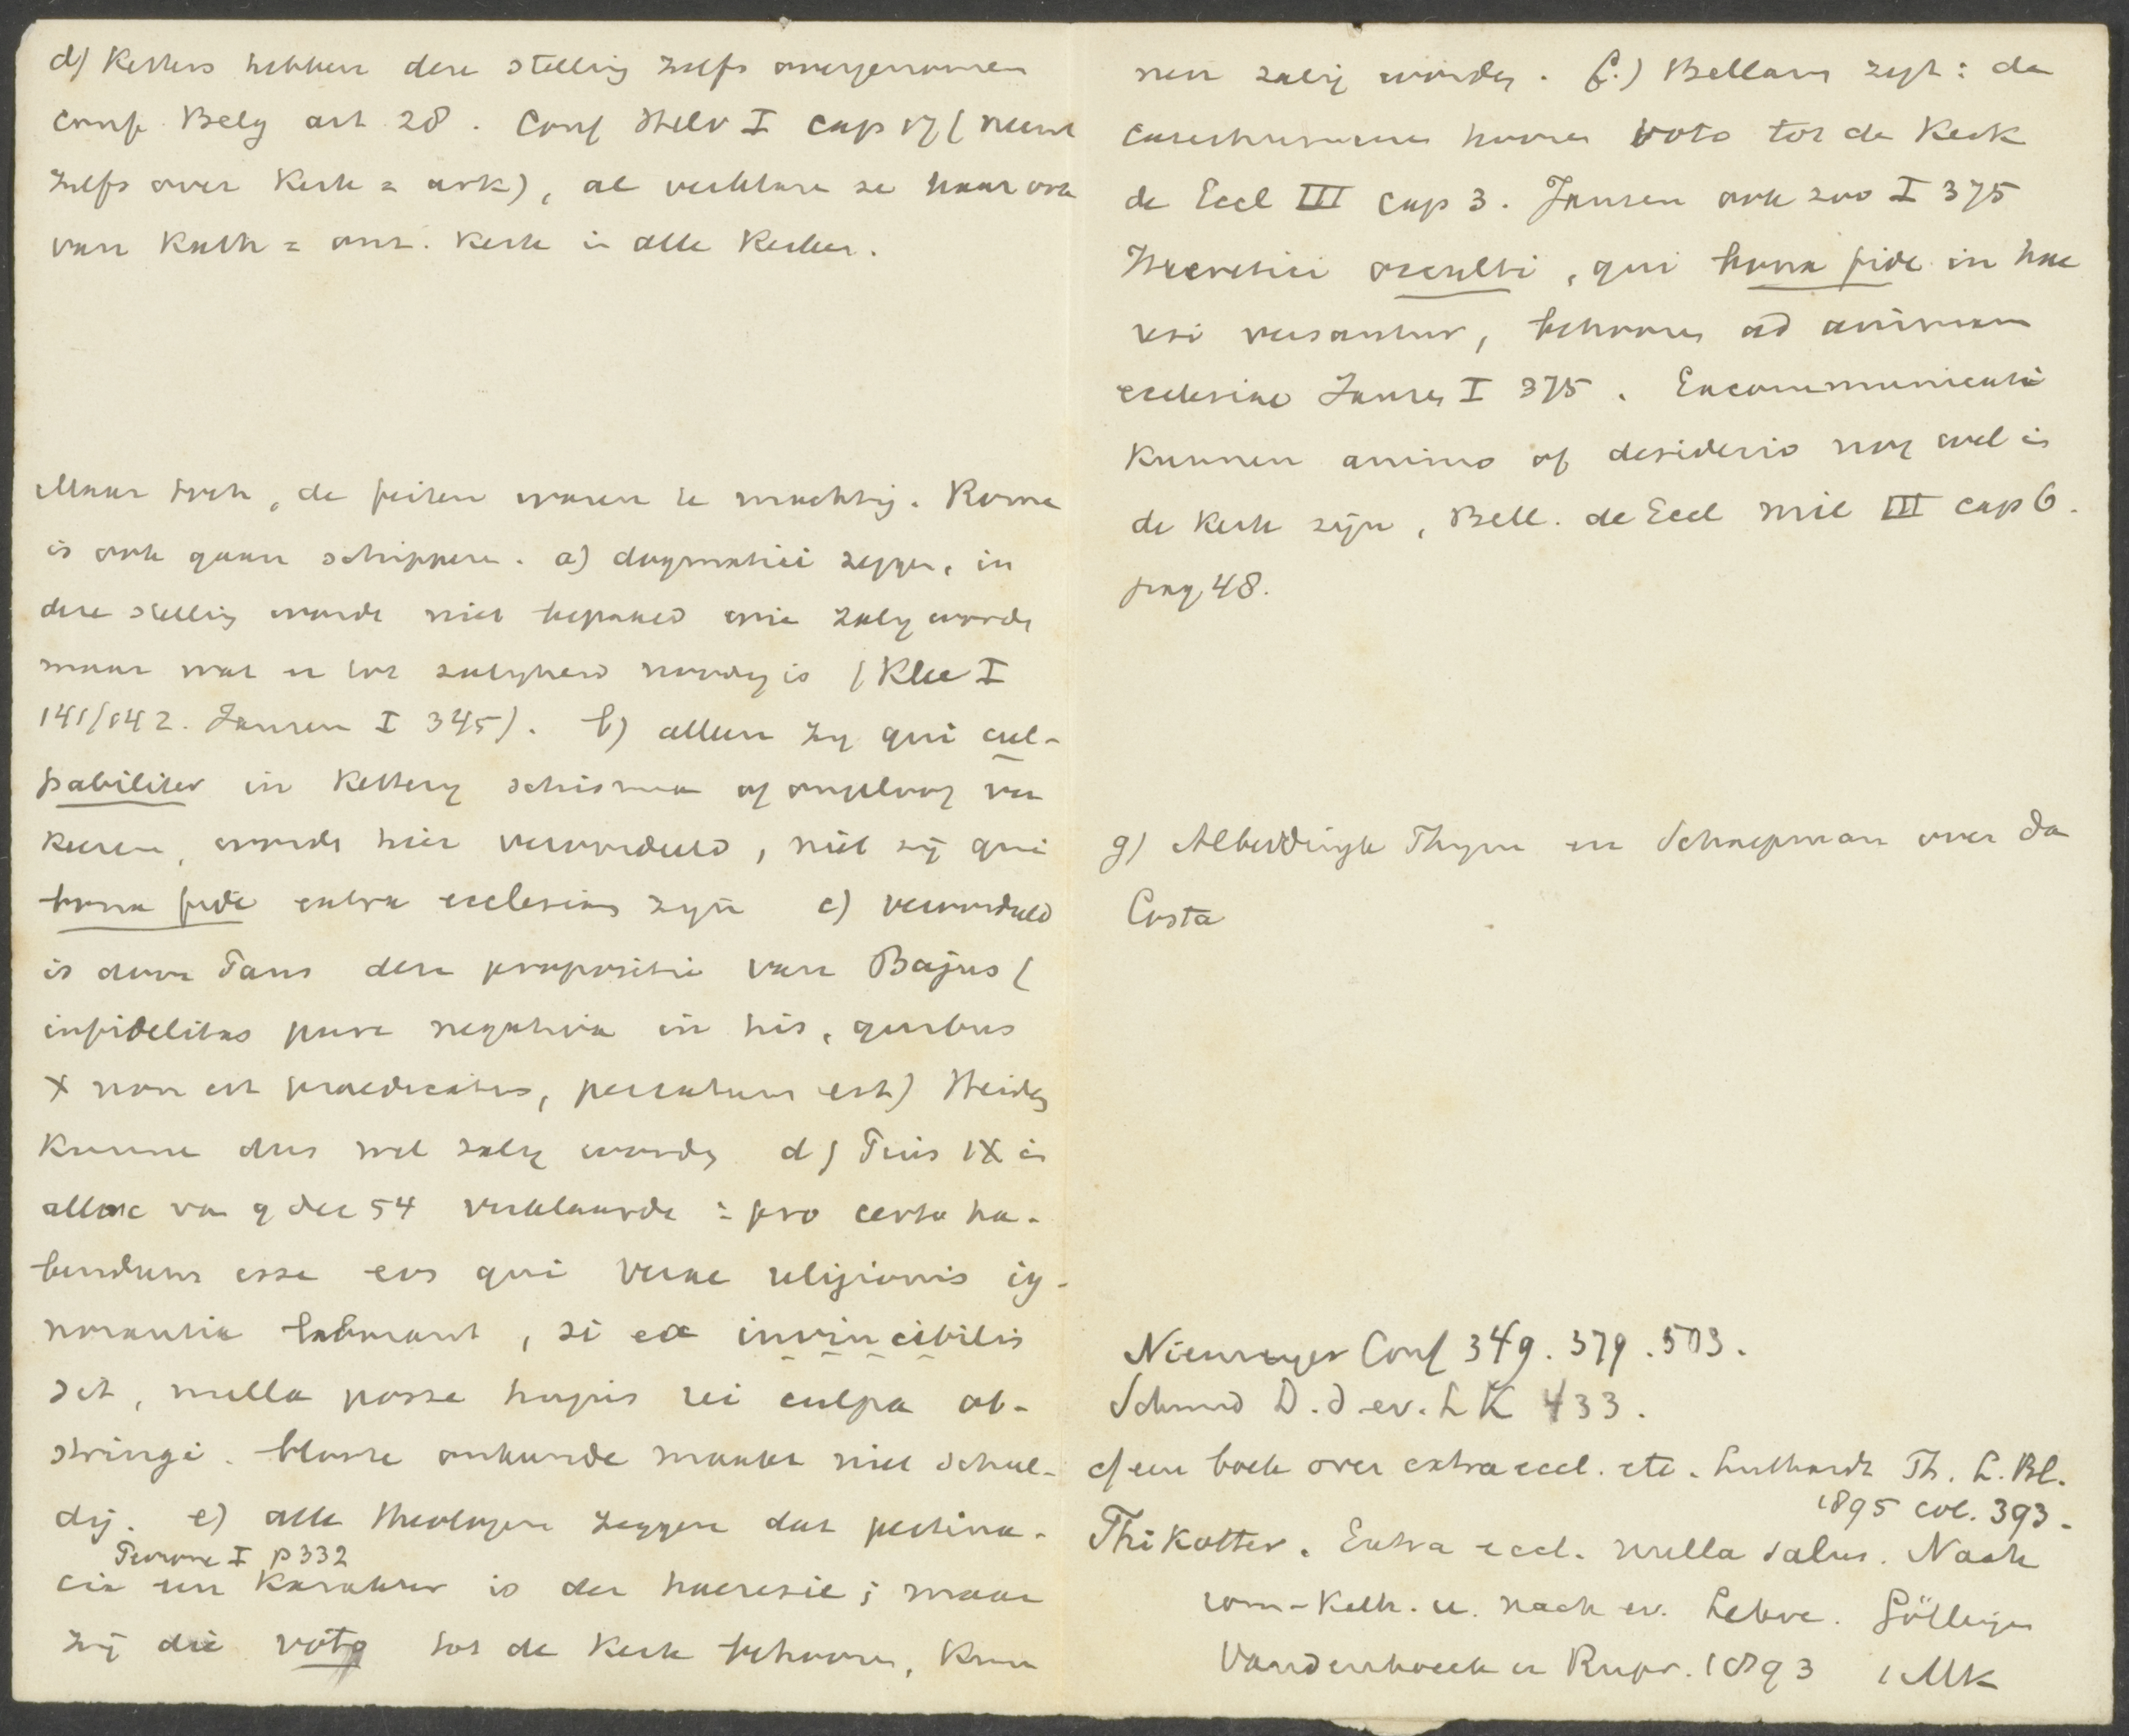 d) Ketters hebben deze stelling zelfs overgenomen
Conf Belg art 28. Conf Helv I cap 17 (neemt
zelfs over Kerk = ark), al verklaren ze haar ook
van Kath = onz. Kerk in alle Kerken.
Maar toch, de feiten waren te machtig. Rome
is ook gaan schipperen. a) dogmatici zeggen, in
deze stelling wordt niet bepaald wie zalig wordt
maar wat er tot zaligheid noodig is (Klee I
141/142. Jansen I 345). b) alleen zy qui cul-
pabiliter in Kettery schisma of ongeloof ver
keeren, wordt hier veroordeeld, niet zij qui
bona fide extra ecclesiam zijn c) veroordeeld
is door Paus deze propositie van Bajus (
infidelitas pure negativa in his, quibus
X non est praedicatus, peccatum est) Heiden
kunne dus wel zalig worden d) Pius IX in
alloc van 9 dec 54 verklaarde: pro certo ha-
bendum esse eos qui verae religionis ig-
norantia laborant, si ea invincibilis
sit, nulla posse hujus rei culpa ob-
stringi. bloote onkunde maakt niet schul-
dig. e) alle theologen zeggen dat pertina-
Perrone I p 332
cia een karakter is der haeresie; maar
zij die voto tot de Kerk behooren, kun
nen zalig worden. f.) Bellarm zegt: de
catechumenen hooren voto tot de Kerk
de Eccl III cap 3. Jansen ook zoo I 375
Haeretici occulti, qui bona fide in hae
resi versantur, behooren ad animam
ecclesiae Jansen I 375. Excommunicati
kunnen animo of desiderio nog wel in
de Kerk zijn, Bell. de Eccl mil III cap 6.
pag 48.
g) Alberdingk Thym en Schaepman over da
Costa
Niemeyer Conf 349. 379. 503.
Schmid D. d. ev. L K 433.
cf een boek over extra eccl. etc. Luthardt Th. L. Bl.
1895 col. 393.
Thikötter. Extra eccl. nulla salus. Nach
rom-Kath. u. nach ev. Lehre. Göttingen
Vandenhoeck u Rupr. 1893 1 Mk